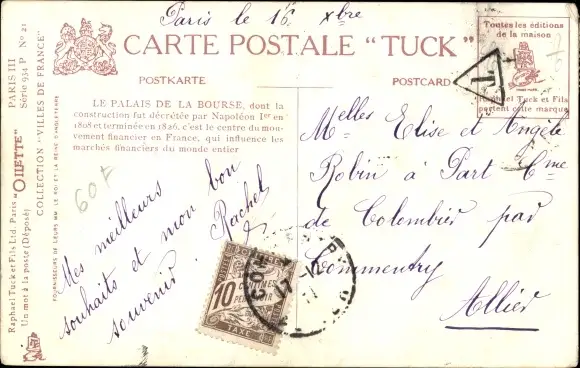 Paris le 16 Xbre
CARTE POSTALE "TUCK"
POSTKARTE
POSTCARD
Toutes les éditions
de la maison
Raphael Tuck et Fils
portent cette marque
T
PARIS III
Série 934 P Nº 21
COLLECTION "VILLES DE FRANCE"
"OILETTE"
Raphael Tuck et Fils Ltd. Paris
Un mot à la poste (Déposé)
FOURNISSEURS DE LEURS MM LE ROI ET LA REINE D'ANGLETERRE
LE PALAIS DE LA BOURSE, dont la
construction fut décrétée par Napoléon Ier en
1808 et terminée en 1826, c'est le centre du mou-
vement financier en France, qui influence les
marchés financiers du monde entier
60F
Mes meilleurs
souhaits et mon bon
souvenir. Rachel
Melles Elise et Angèle
Robin à Part Cme
de Colombier par
Commentry
Allier
10 CENTIMES
À PERCEVOIR
TAXE
CO
17-12